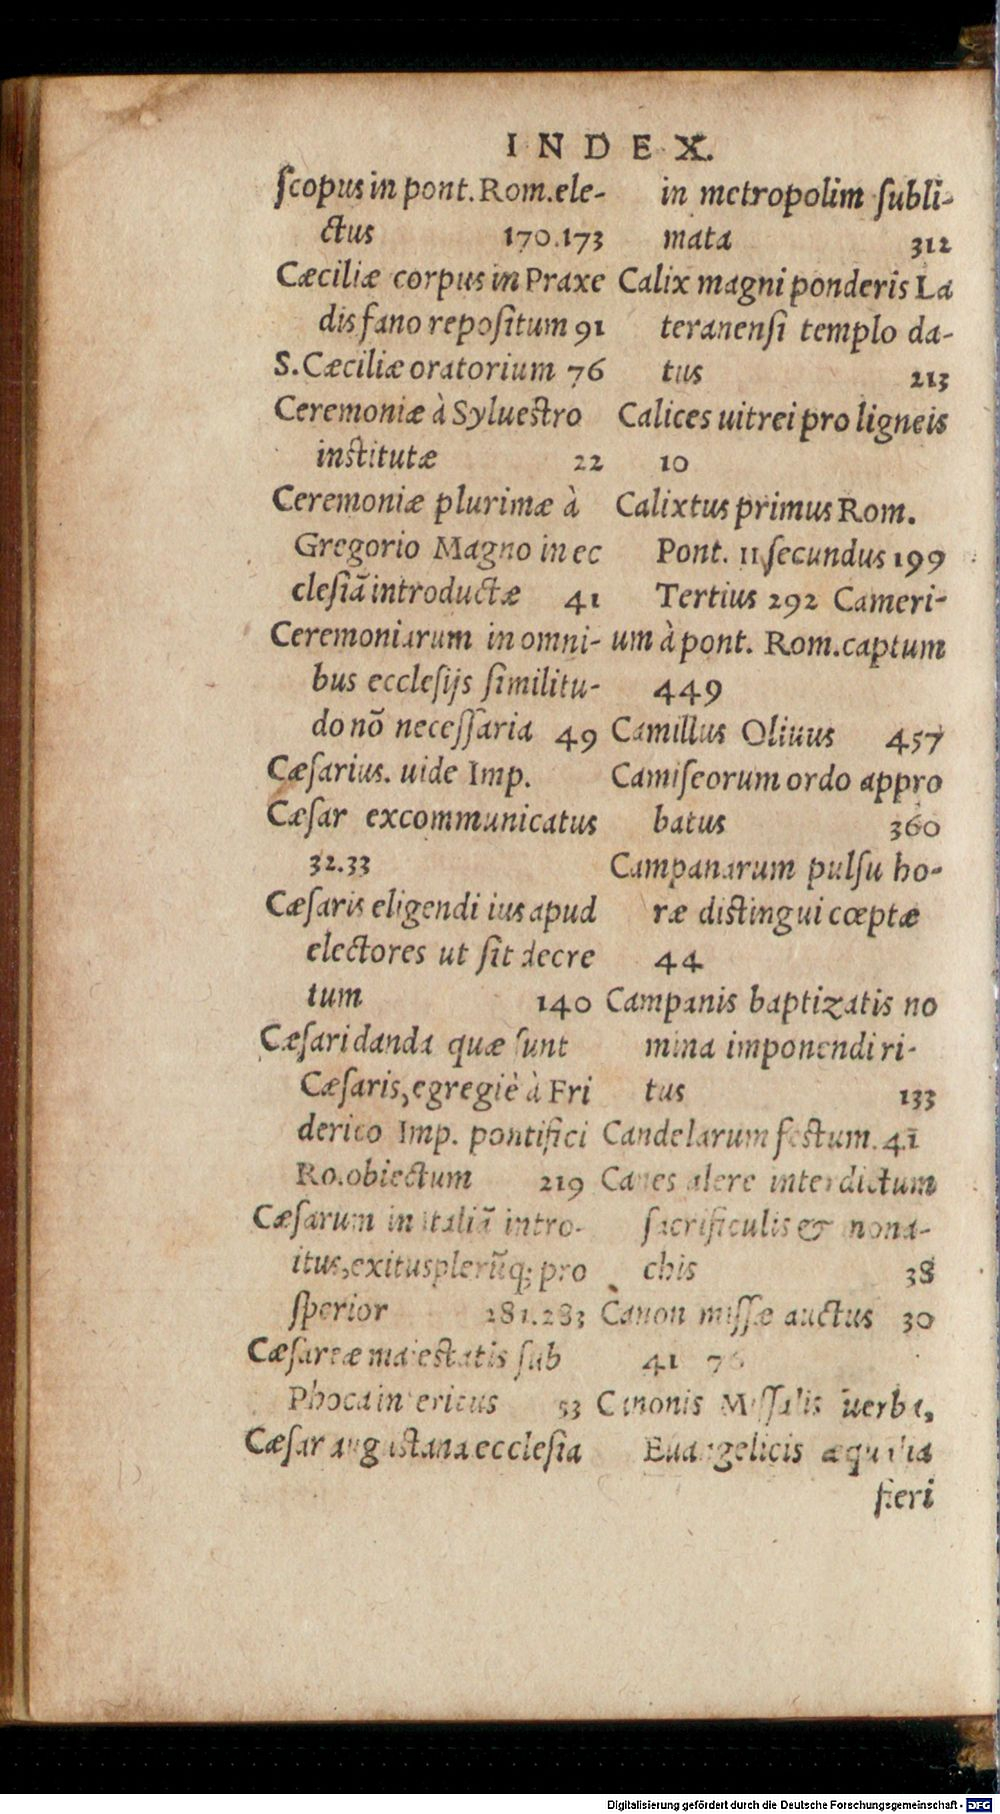 INDEX.
ſcopus in pont. Rom. ele-
ctus 170.173
Cæciliæ corpus in Praxe
dis fano repoſitum 91
S. Cæciliæ oratorium 76
Ceremoniæ à Syluestro
institutæ 22
Ceremoniæ plurimæ à
Gregorio Magno in ec
cleſiā introductæ 41
Ceremoniarum in omni-
bus eccleſijs ſimilitu-
do nō neceſſaria 49
Cæſarius. uide Imp.
Cæſar excommunicatus
32.33
Cæſaris eligendi ius apud
electores ut ſit decre
tum 140
Cæſari danda quæ ſunt
Cæſaris, egregiè à Fri
derico Imp. pontifici
Ro. obiectum 219
Cæſarum in Italiā intro-
itus, exitus plerūq; pro
ſperior 281.283
Cæſareæ maiestatis ſub
Phoca interitus 53
Cæſar augustana eccleſia
in metropolim ſubli-
mata 312
Calix magni ponderis La
teranenſi templo da-
tus 213
Calices uitrei pro ligneis
10
Calixtus primus Rom.
Pont. 11 ſecundus 199
Tertius 292 Cameri-
um à pont. Rom. captum
449
Camillus Oliuus 457
Camiſeorum ordo appro
batus 360
Campanarum pulſu ho-
ræ distingui cœptæ
44
Campanis baptizatis no
mina imponendi ri-
tus 133
Candelarum festum. 41
Canes alere interdictum
ſacrificulis & mona-
chis 38
Canon miſſæ auctus 30
41 76
Canonis Miſſalis uerba,
Euangelicis æqualia
fieri
Digitalisierung gefördert durch die Deutsche Forschungsgemeinschaft - DFG